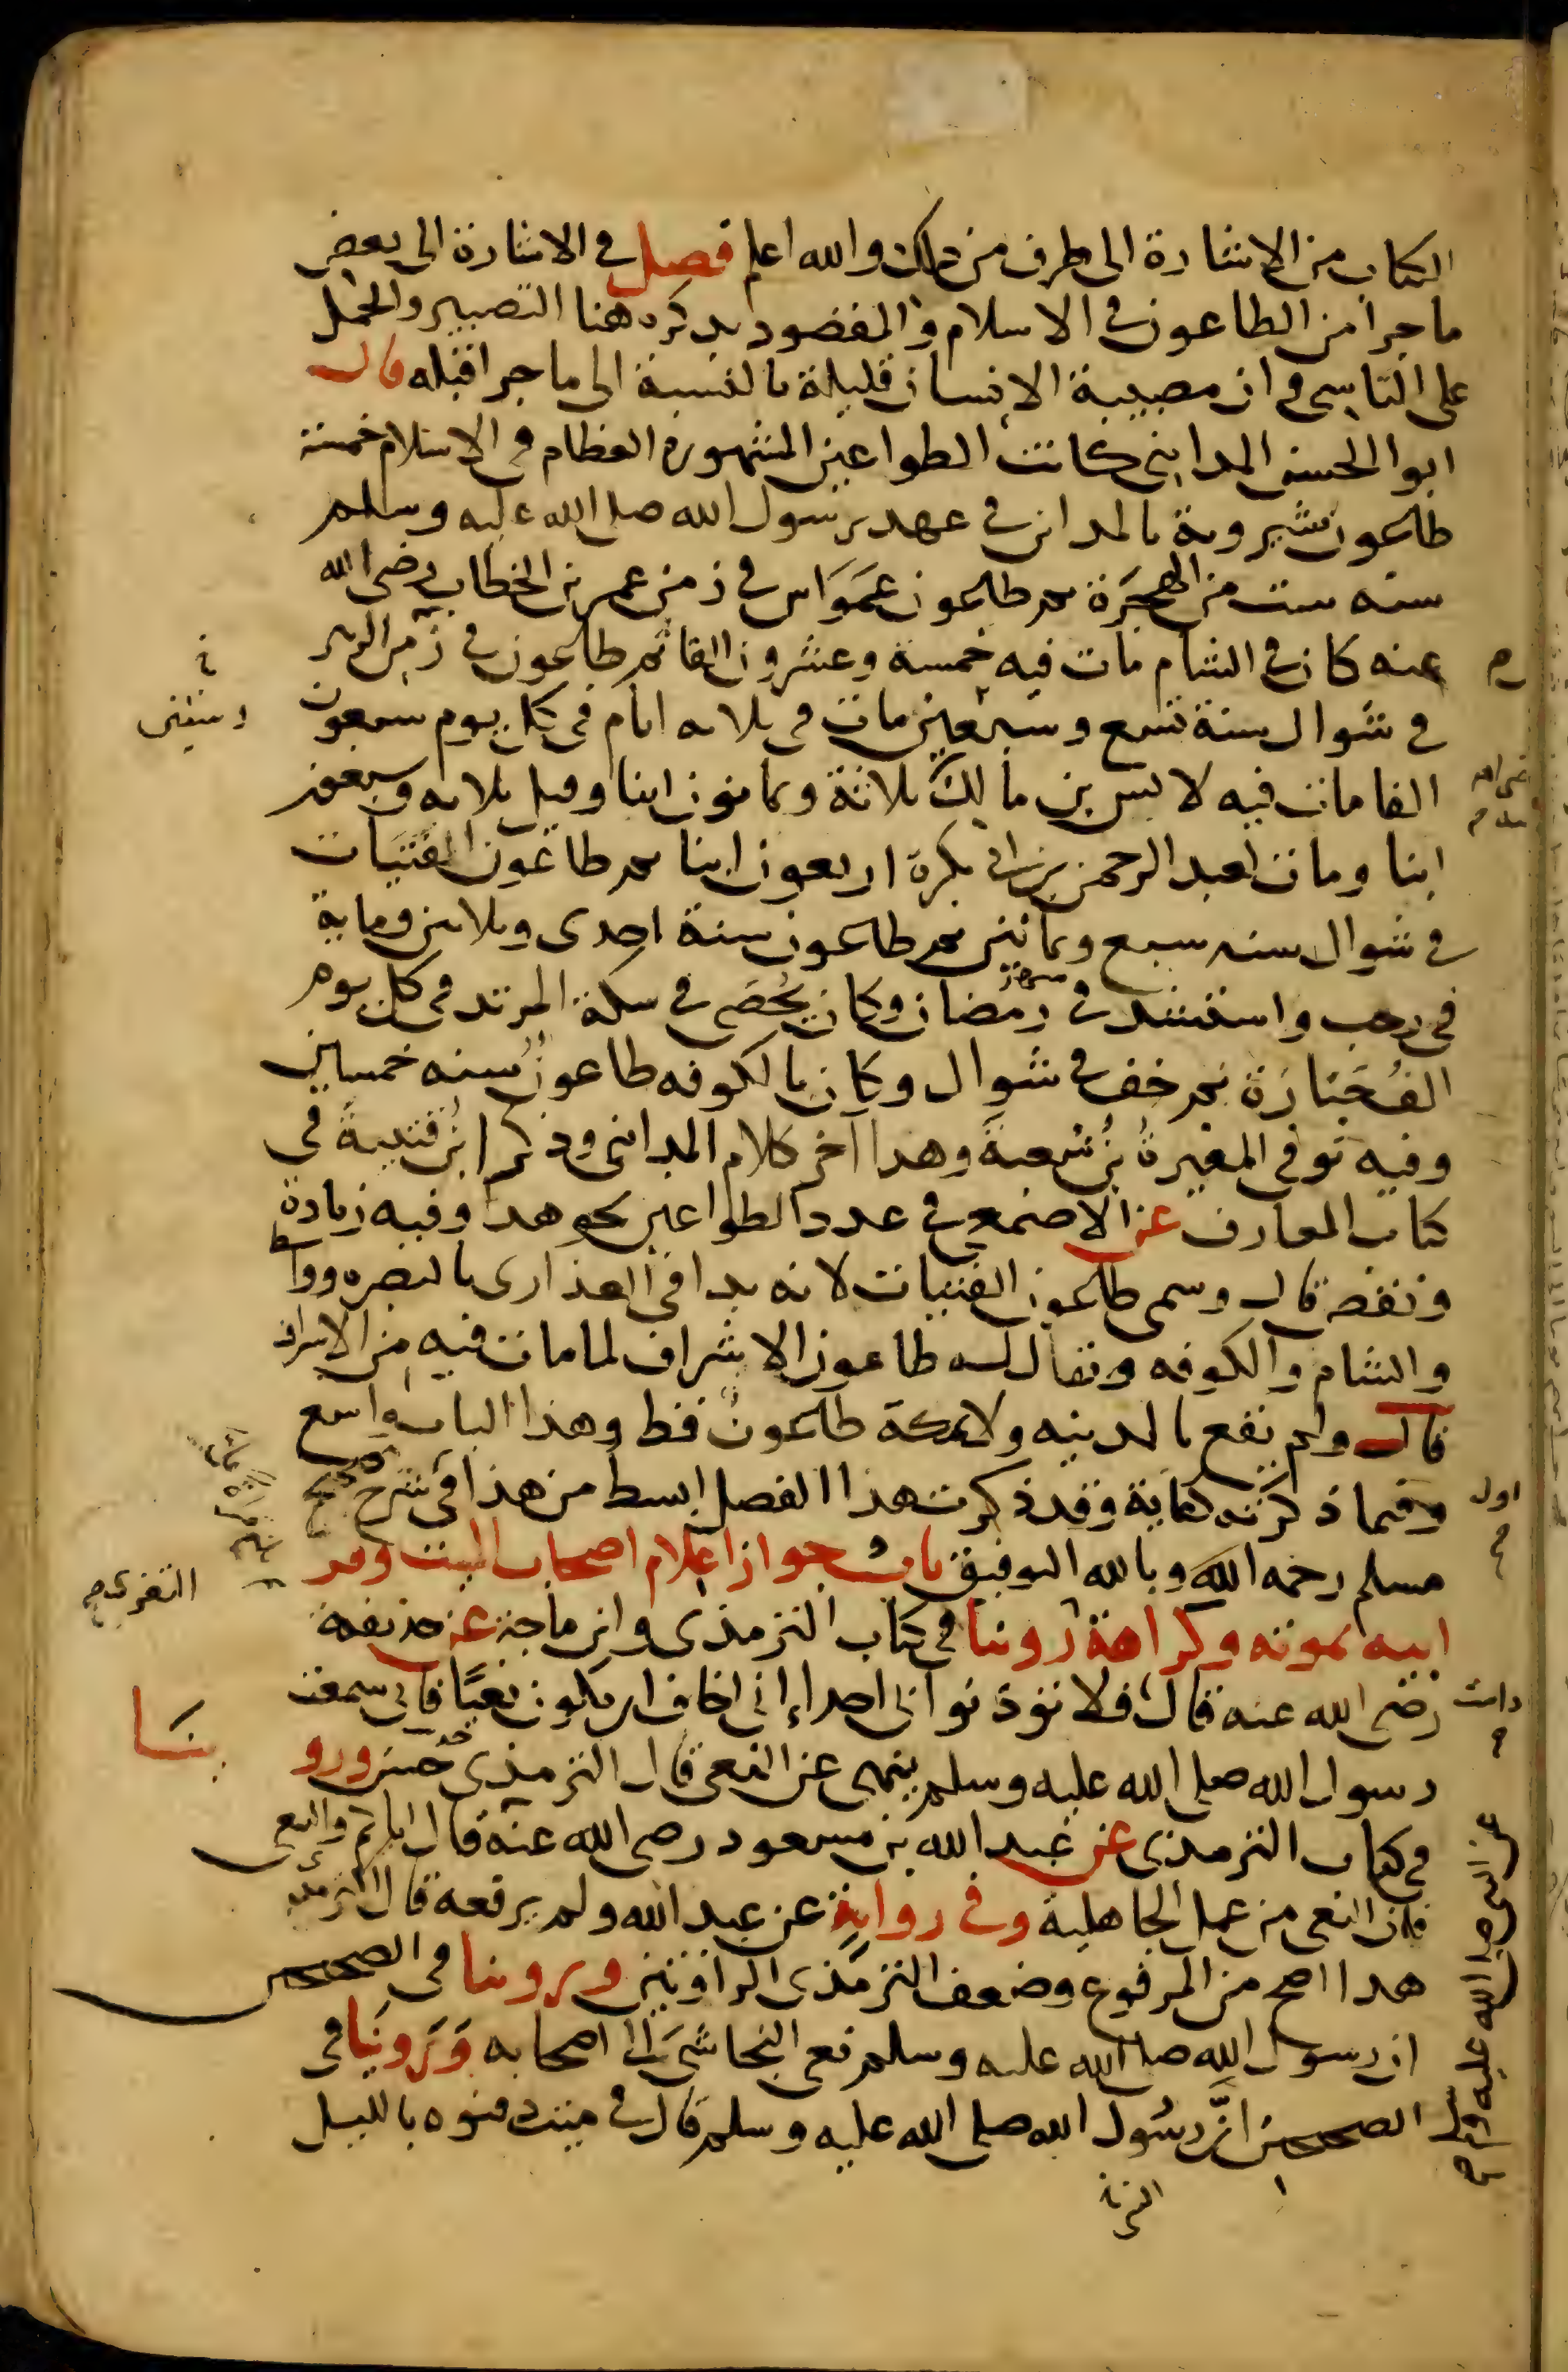 الكتاب من الاشارة الى طرف من ذلك والله اعلم فصل في الاشارة الى بعض
ما جرا من الطاعون في الاسلام والمقصود بذكره هنا التصبير والحمل
على التاسي وان مصيبة الانسان قليلة بالنسبة الى ما جرا قبله قال
ابوا الحسن المدايني كانت الطواعين المشهوره العظام في الاسلام خمسة
طاعون شيروية بالمداين في عهد رسول الله صلى الله عليه وسلم
سنه ست من الهجرة ثم طاعون عمواس في زمن عمر بن الخطاب رضي الله
عنه كان في الشام مات فيه خمسة وعشرون الفا ثم طاعون في زمن الزبير
في شوال سنة تسع وسبعين مات في ثلاثه ايام في كل يوم سبعون
وستين
الفا مات فيه لانس بن مالك ثلاثة وثمانون ابنا وقيل ثلاثه وسبعون
ابنا ومات لعبد الرحمن بن ابي بكرة اربعون ابنا ثم طاعون الفتيات
في شوال سنه سبع وثمانين ثم طاعون سنة احدى وثلاثين وماية
في رجب واشتد في شهر رمضان وكان يحصى في سكة المربد في كل يوم
الف جنازة ثم خف في شوال وكان بالكوفه طاعون سنه خمسين
وفيه توفي المغيرة بن شعبة وهذا آخر كلام المدايني وذكر ابن قتيبة في
كتاب المعارف عن الاصمعي في عدد الطواعين نحو هذا وفيه زيادة
ونقص قال وسمي طاعون الفتيات لانه بدا في العذارى بالبصره وواسط
والشام والكوفه ويقال له طاعون الاشراف لما مات فيه من الاشراف
قال ولم يقع بالمدينه ولا بمكة طاعون قط وهذا الباب واسع
وفيما ذكرته كفاية وقد ذكرت هذا الفصل ابسط من هذا في شرح صحيح
اول
مسلم رحمه الله وبالله التوفيق باب جواز اعلام اصحاب الميت وقر
ابيه بموته وكراهة روينا في كتاب الترمذي وابن ماجة عن حذيفة
رضي الله عنه قال فلا تؤذنوا بي احدا إني اخاف ان يكون نعيا فاني سمعت
رسول الله صلى الله عليه وسلم ينهى عن النعي قال الترمذي حسن ورو
ينا
في كتاب الترمذي عن عبد الله بن مسعود رضي الله عنه قال اياكم والنعي
عن النبي صلى الله عليه وسلم
فان النعي من عمل الجاهلية وفي رواية عن عبد الله ولم يرفعه قال الترمذي
هذا اصح من المرفوع وضعف الترمذي الروايتين وروينا في الصحيحين
ان رسول الله صلى الله عليه وسلم نعى النجاشي الى اصحابه وروينا في
الصحيحين ان رسول الله صلى الله عليه وسلم قال في ميت دفنوه بالليل